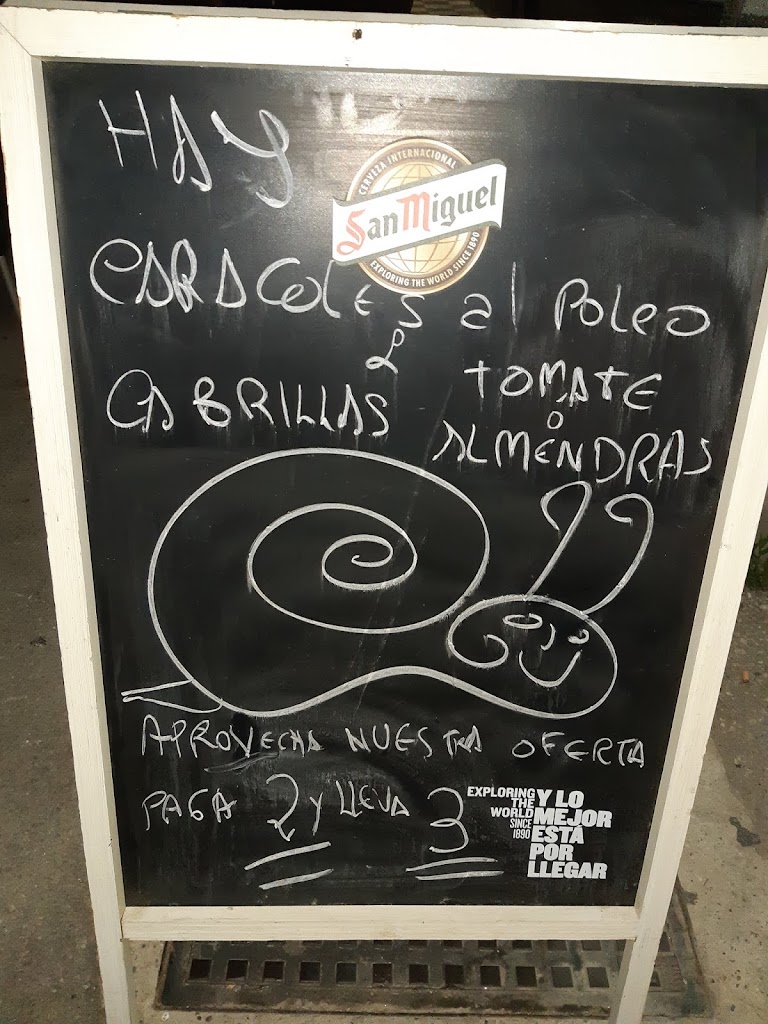 HAY
CERVEZA INTERNACIONAL
San Miguel
EXPLORING THE WORLD SINCE 1890
CARACOLES al Poleo
CABRILLAS TOMATE
o
ALMENDRAS
APROVECHA NUESTRA OFERTA
PAGA 2 y LLEVA 3
EXPLORING
THE
WORLD
SINCE
1890
Y LO
MEJOR
ESTÁ
POR
LLEGAR